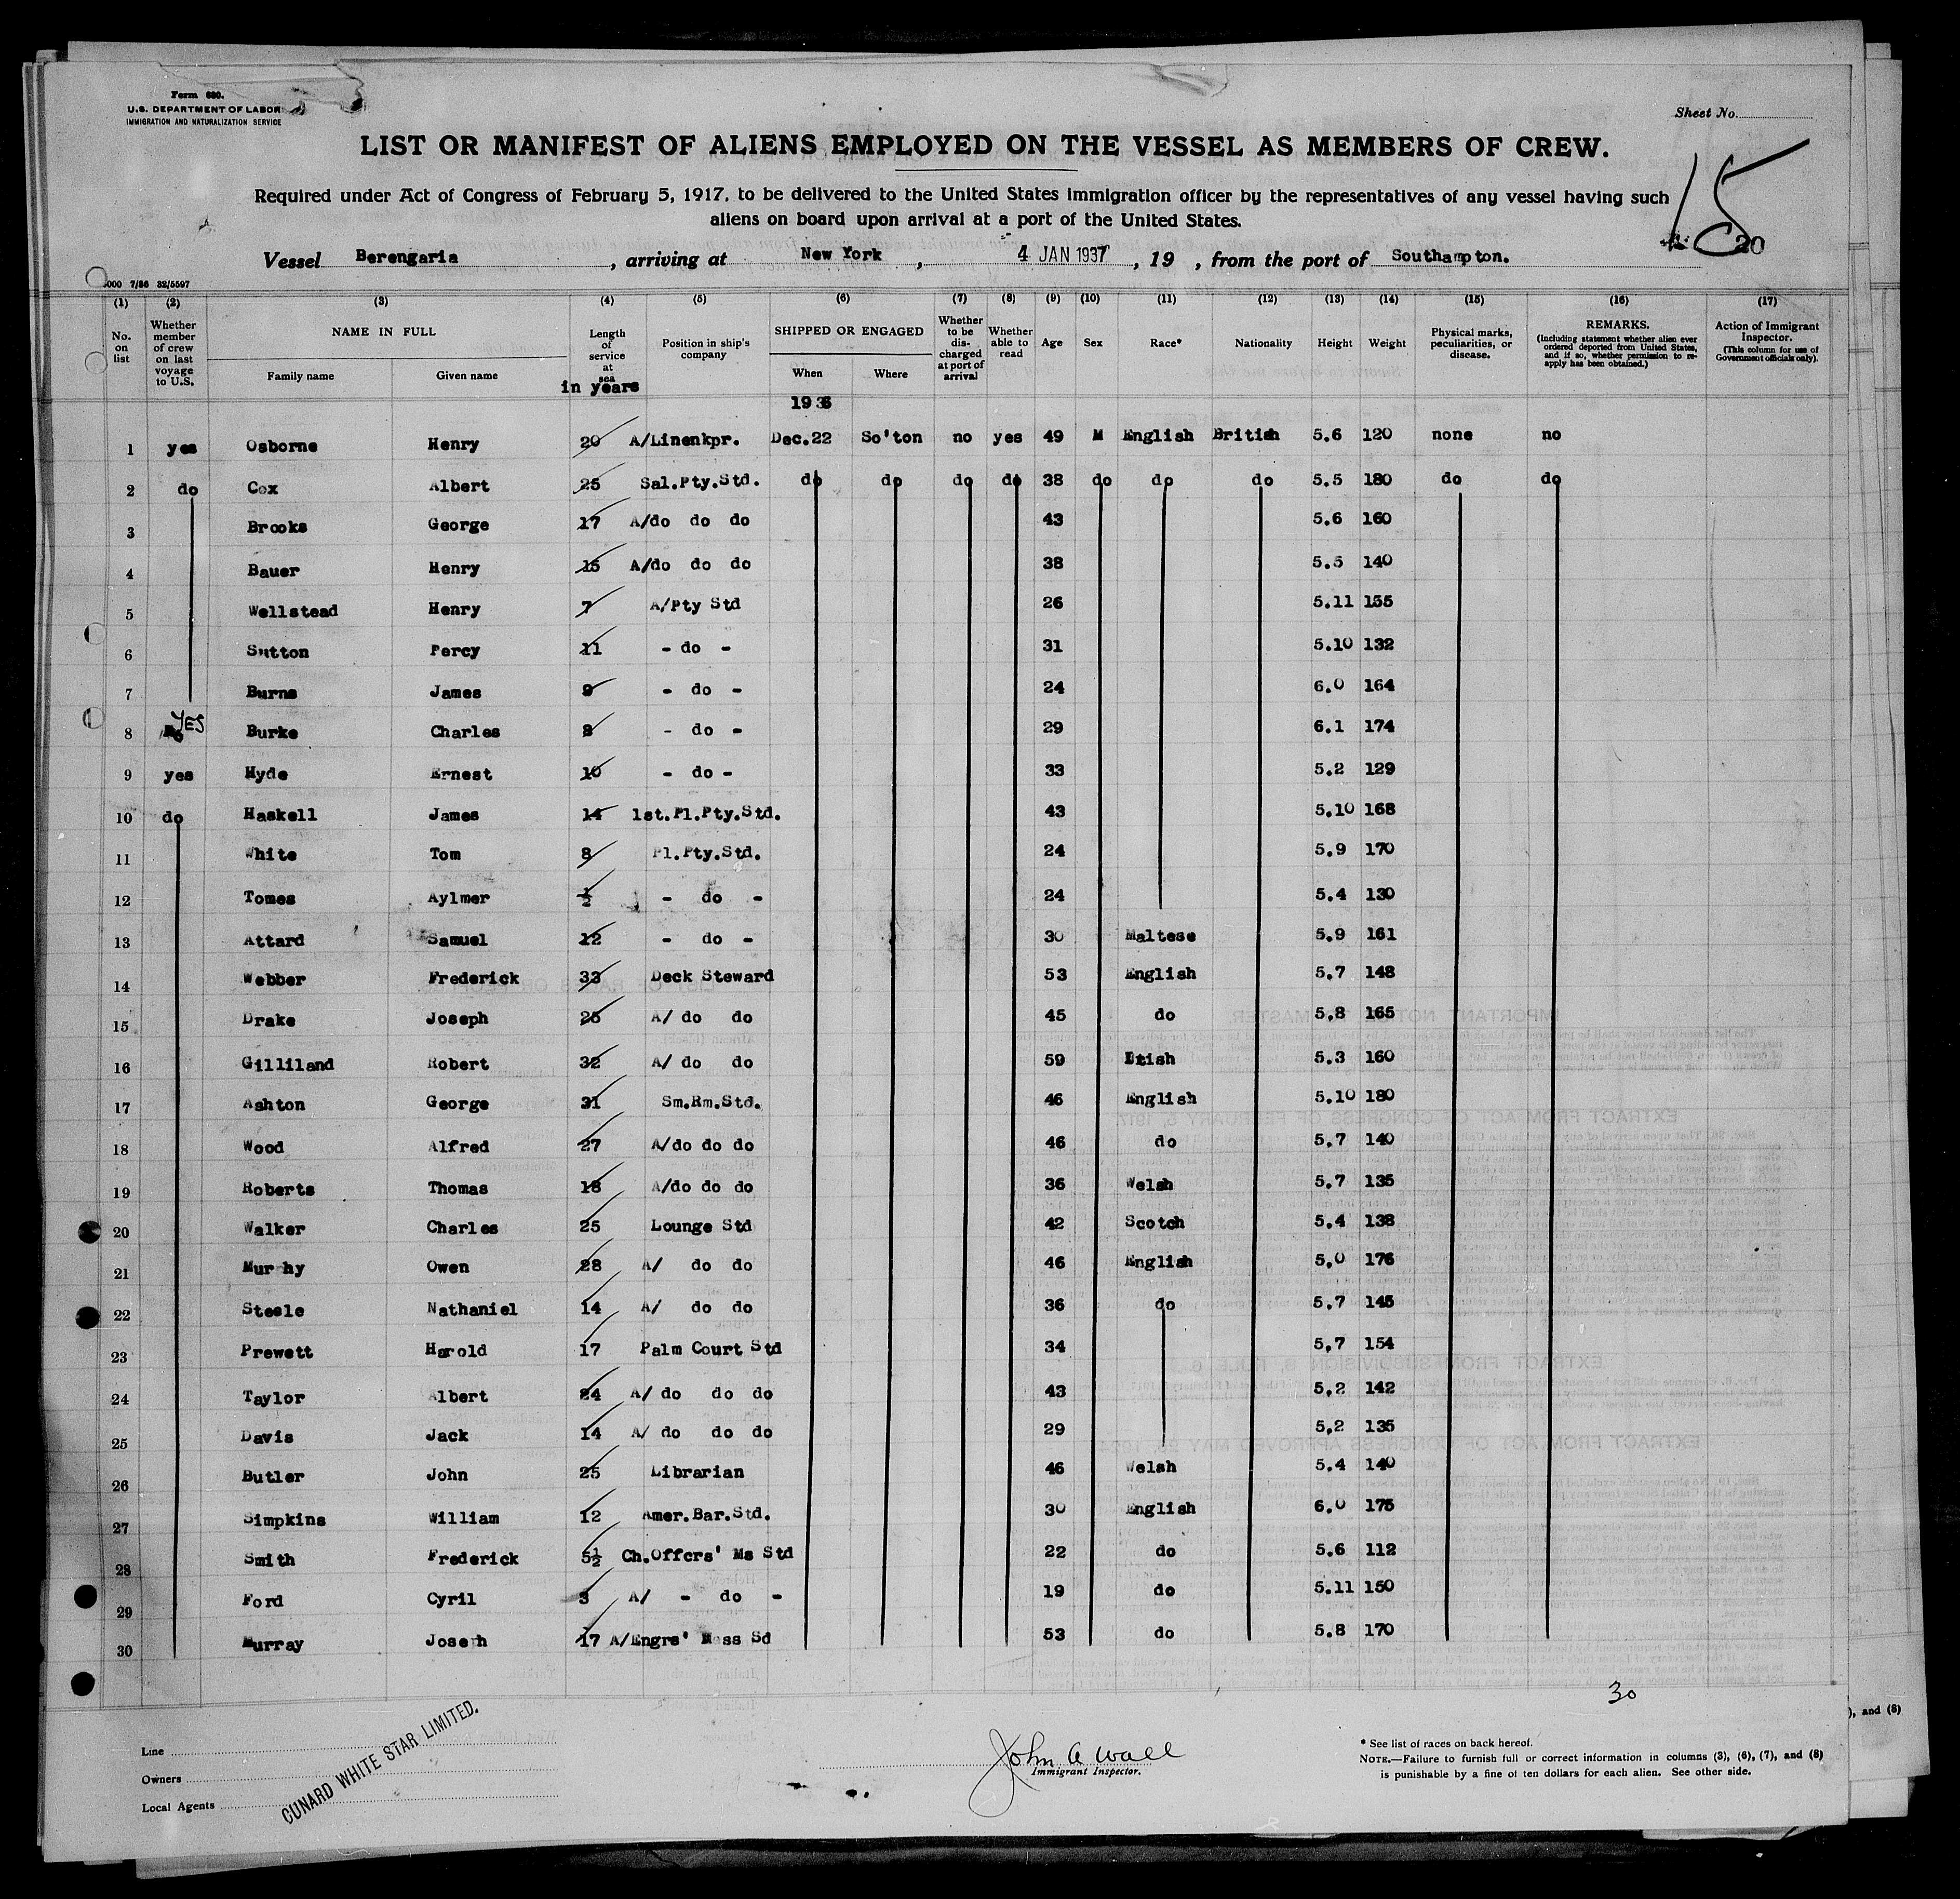 Form 680.
U.S. DEPARTMENT OF LABOR
IMMIGRATION AND NATURALIZATION SERVICE
Sheet No.
LIST OR MANIFEST OF ALIENS EMPLOYED ON THE VESSEL AS MEMBERS OF CREW.
15
Required under Act of Congress of February 5, 1917, to be delivered to the United States immigration officer by the representatives of any vessel having such
aliens on board upon arrival at a port of the United States.
20
Vessel Berengaria, arriving at New York, 4 JAN 1937, 19 , from the port of Southampton.
000 7/36 32/5597
(1) (2) (3) (4) (5) (6) (7) (8) (9) (10) (11) (12) (13) (14) (15) (16) (17)
No. on list
Whether member of crew on last voyage to U.S.
NAME IN FULL
Family name Given name
Length of service at sea
in years
Position in ship's company
SHIPPED OR ENGAGED
When Where
Whether to be discharged at port of arrival
Whether able to read
Age Sex Race* Nationality Height Weight
Physical marks, peculiarities, or disease.
REMARKS.
(Including statement whether alien ever ordered deported from United States, and if so, whether permission to re-apply has been obtained.)
Action of Immigrant Inspector.
(This column for use of Government officials only).
1936
1 yes Osborne Henry 20 A/Linenkpr. Dec.22 So'ton no yes 49 M English British 5.6 120 none no
2 do Cox Albert 25 Sal.Pty.Std. do do do do 38 do do do 5.5 180 do do
3 Brooks George 17 A/do do do 43 5.6 160
4 Bauer Henry 15 A/do do do 38 5.5 140
5 Wellstead Henry 7 A/Pty Std 26 5.11 155
6 Sutton Percy 11 - do - 31 5.10 132
7 Burns James 9 - do - 24 6.0 164
8 YES Burke Charles 8 - do - 29 6.1 174
9 yes Hyde Ernest 10 - do - 33 5.2 129
10 do Haskell James 14 1st.Pl.Pty.Std. 43 5.10 168
11 White Tom 8 Pl.Pty.Std. 24 5.9 170
12 Tomes Aylmer ½ - do - 24 5.4 130
13 Attard Samuel 12 - do - 30 Maltese 5.9 161
14 Webber Frederick 33 Deck Steward 53 English 5.7 148
15 Drake Joseph 25 A/ do do 45 do 5.8 165
16 Gilliland Robert 32 A/ do do 59 5.3 160
17 Ashton George 31 Sm.Rm.Std. 46 English 5.10 180
18 Wood Alfred 27 A/do do do 46 do 5.7 140
19 Roberts Thomas 18 A/do do do 36 Welsh 5.7 135
20 Walker Charles 25 Lounge Std 42 Scotch 5.4 138
21 Mur hy Owen 28 A/ do do 46 English 5.0 176
22 Steele Nathaniel 14 A/ do do 36 do 5.7 145
23 Prewett Harold 17 Palm Court Std 34 5.7 154
24 Taylor Albert 24 A/ do do do 43 5.2 142
25 Davis Jack 14 A/ do do do 29 5.2 135
26 Butler John 25 Librarian 46 Welsh 5.4 140
27 Simpkins William 12 Amer.Bar.Std. 30 English 6.0 175
28 Smith Frederick 5½ Ch.Offcrs' Ms Std 22 do 5.6 112
29 Ford Cyril 3 A/ - do - 19 do 5.11 150
30 Murray Joseph 17 A/Engrs' Mess Sd 53 do 5.8 170
30
), and (8)
Line
Owners
Local Agents
CUNARD WHITE STAR LIMITED.
John A Wall
Immigrant Inspector.
* See list of races on back hereof.
NOTE.—Failure to furnish full or correct information in columns (3), (6), (7), and (8)
is punishable by a fine of ten dollars for each alien. See other side.